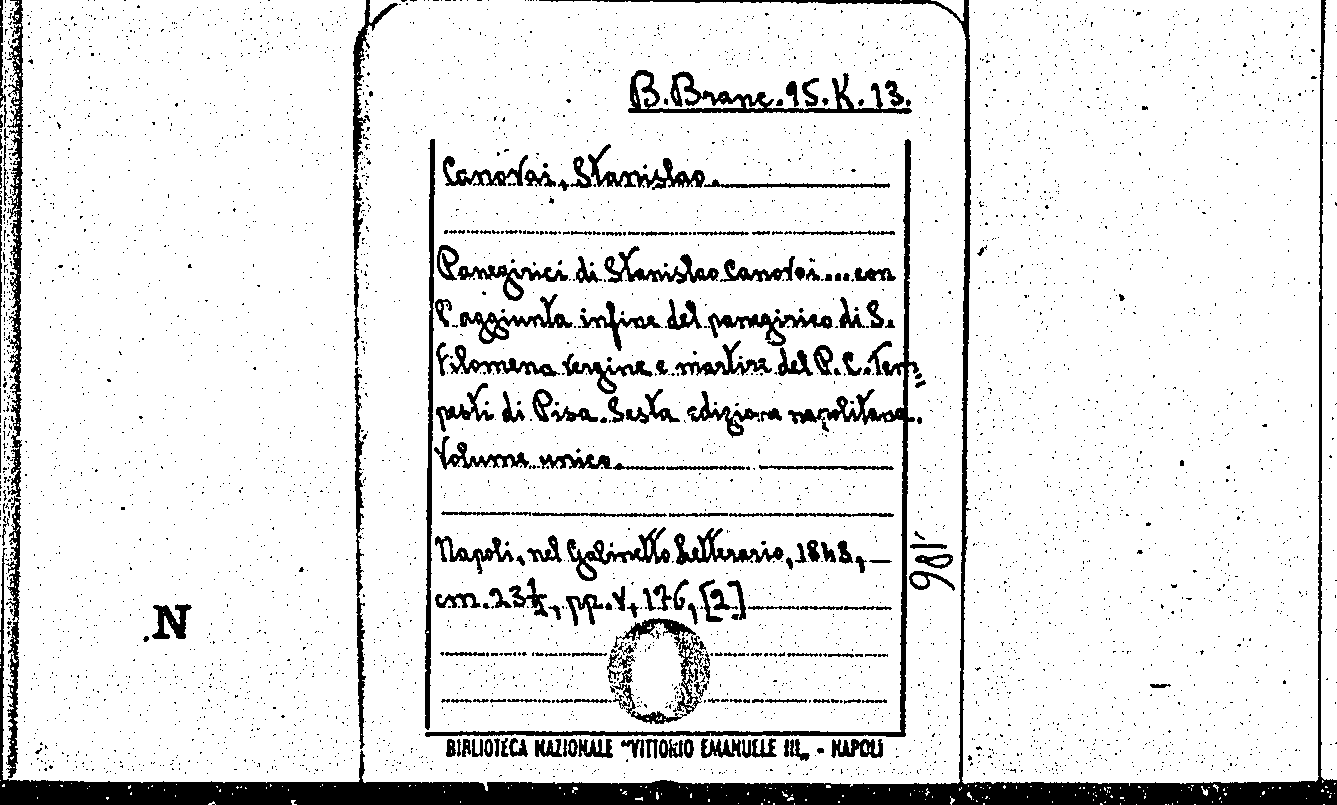 B.Branc.95.K.13.
Canovai, Stanislao.
Panegirici di Stanislao Canovai...con
l'aggiunta infine del panegirico di S.
Filomena vergine e martire del P.C.Tem=
pesti di Pisa. Sesta edizione napolitana.
Volume unico.
Napoli, nel Gabinetto Letterario, 1843,
cm. 23½, pp. V, 176, [2]
186
N
BIBLIOTECA NAZIONALE "VITTORIO EMANUELE III„ - NAPOLI